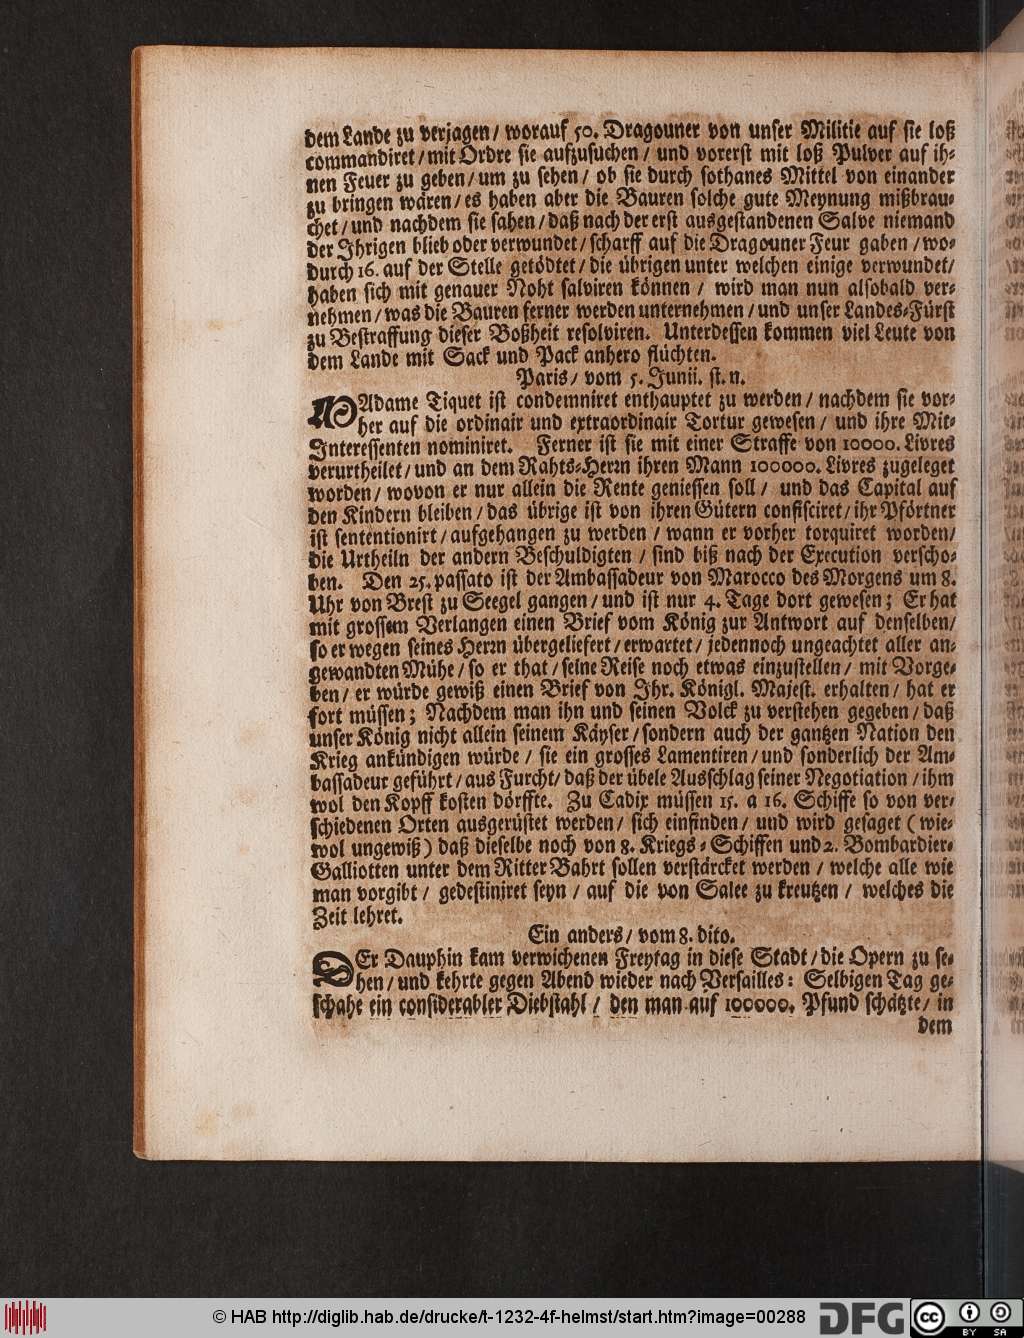 dem Lande zu verjagen / worauf 50. Dragouner von unser Militie auf sie loß
commandiret / mit Ordre sie aufzusuchen / und vorerst mit loß Pulver auf ih-
nen Feuer zu geben / um zu sehen / ob sie durch sothanes Mittel von einander
zu bringen wären / es haben aber die Bauren solche gute Meynung mißbrau-
chet / und nachdem sie sahen / daß nach der erst ausgestandenen Salve niemand
der Ihrigen blieb oder verwundet / scharff auf die Dragouner Feur gaben / wo-
durch 16. auf der Stelle getödtet / die übrigen unter welchen einige verwundet /
haben sich mit genauer Noht salviren können / wird man nun alsobald ver-
nehmen / was die Bauren ferner werden unternehmen / und unser Landes-Fürst
zu Bestraffung dieser Boßheit resolviren. Unterdessen kommen viel Leute von
dem Lande mit Sack und Pack anhero flüchten.
Paris / vom 5. Junii. st. n.
MAdame Tiquet ist condemniret enthauptet zu werden / nachdem sie vor-
her auf die ordinair und extraordinair Tortur gewesen / und ihre Mit-
Interessenten nominiret. Ferner ist sie mit einer Straffe von 10000. Livres
verurtheilet / und an dem Rahts-Herrn ihren Mann 100000. Livres zugeleget
worden / wovon er nur allein die Rente geniessen soll / und das Capital auf
den Kindern bleiben / das übrige ist von ihren Gütern confisciret / ihr Pförtner
ist sententionirt / aufgehangen zu werden / wann er vorher torquiret worden /
die Urtheiln der andern Beschuldigten / sind biß nach der Execution verscho-
ben. Den 25. passato ist der Ambassadeur von Marocco des Morgens um 8.
Uhr von Brest zu Seegel gangen / und ist nur 4. Tage dort gewesen; Er hat
mit grossem Verlangen einen Brief vom König zur Antwort auf denselben /
so er wegen seines Herrn übergeliefert / erwartet / jedennoch ungeachtet aller an-
gewandten Mühe / so er that / seine Reise noch etwas einzustellen / mit Vorge-
ben / er würde gewiß einen Brief von Ihr. Königl. Majest. erhalten / hat er
fort müssen; Nachdem man ihn und seinen Volck zu verstehen gegeben / daß
unser König nicht allein seinem Käyser / sondern auch der gantzen Nation den
Krieg ankündigen würde / sie ein grosses Lamentiren / und sonderlich der Am-
bassadeur geführt / aus Furcht / daß der übele Ausschlag seiner Negotiation / ihm
wol den Kopff kosten dörffte. Zu Cadix müssen 15. a 16. Schiffe so von ver-
schiedenen Orten ausgerüstet werden / sich einfinden / und wird gesaget ( wie-
wol ungewiß ) daß dieselbe noch von 8. Kriegs-Schiffen und 2. Bombardier-
Galliotten unter dem Ritter Bahrt sollen verstärcket werden / welche alle wie
man vorgibt / gedestiniret seyn / auf die von Salee zu kreutzen / welches die
Zeit lehret.
Ein anders / vom 8. dito.
DEr Dauphin kam verwichenen Freytag in diese Stadt / die Opern zu se-
hen / und kehrte gegen Abend wieder nach Versailles: Selbigen Tag ge-
schahe ein considerabler Diebstahl / den man auf 100000. Pfund schätzte / in
dem
© HAB http://diglib.hab.de/drucke/t-1232-4f-helmst/start.htm?image=00288
DFG
cc BY SA